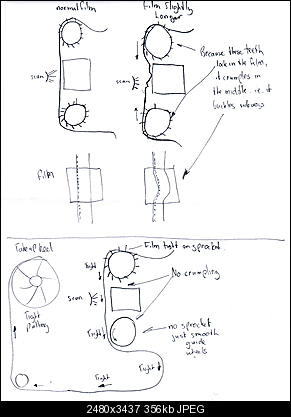 normal film
Film Slightly
Longer
scan
scan
Because these teeth
lock in the film,
it crumples in
the middle. i.e. it
buckles sideways
film
Take up Reel
Film tight on sprocket.
Tight
scan
No crumpling
Tight
pulling
Tight
no sprocket
just smooth
guide
wheels
Tight
Tight
2480x3437 356kb JPEG